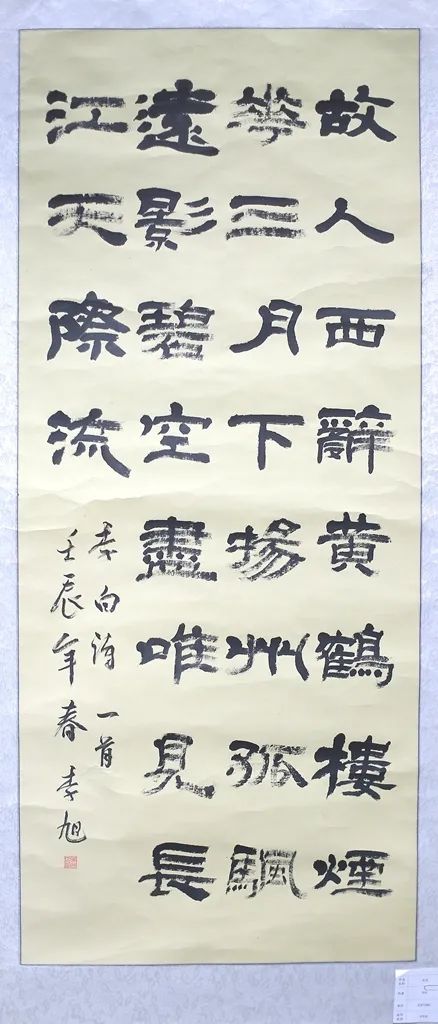 故人西辭黄鶴樓煙
華三月下揚州孤颿
遠影碧空盡唯見長
江天際流
李白詩一首
壬辰年春李旭